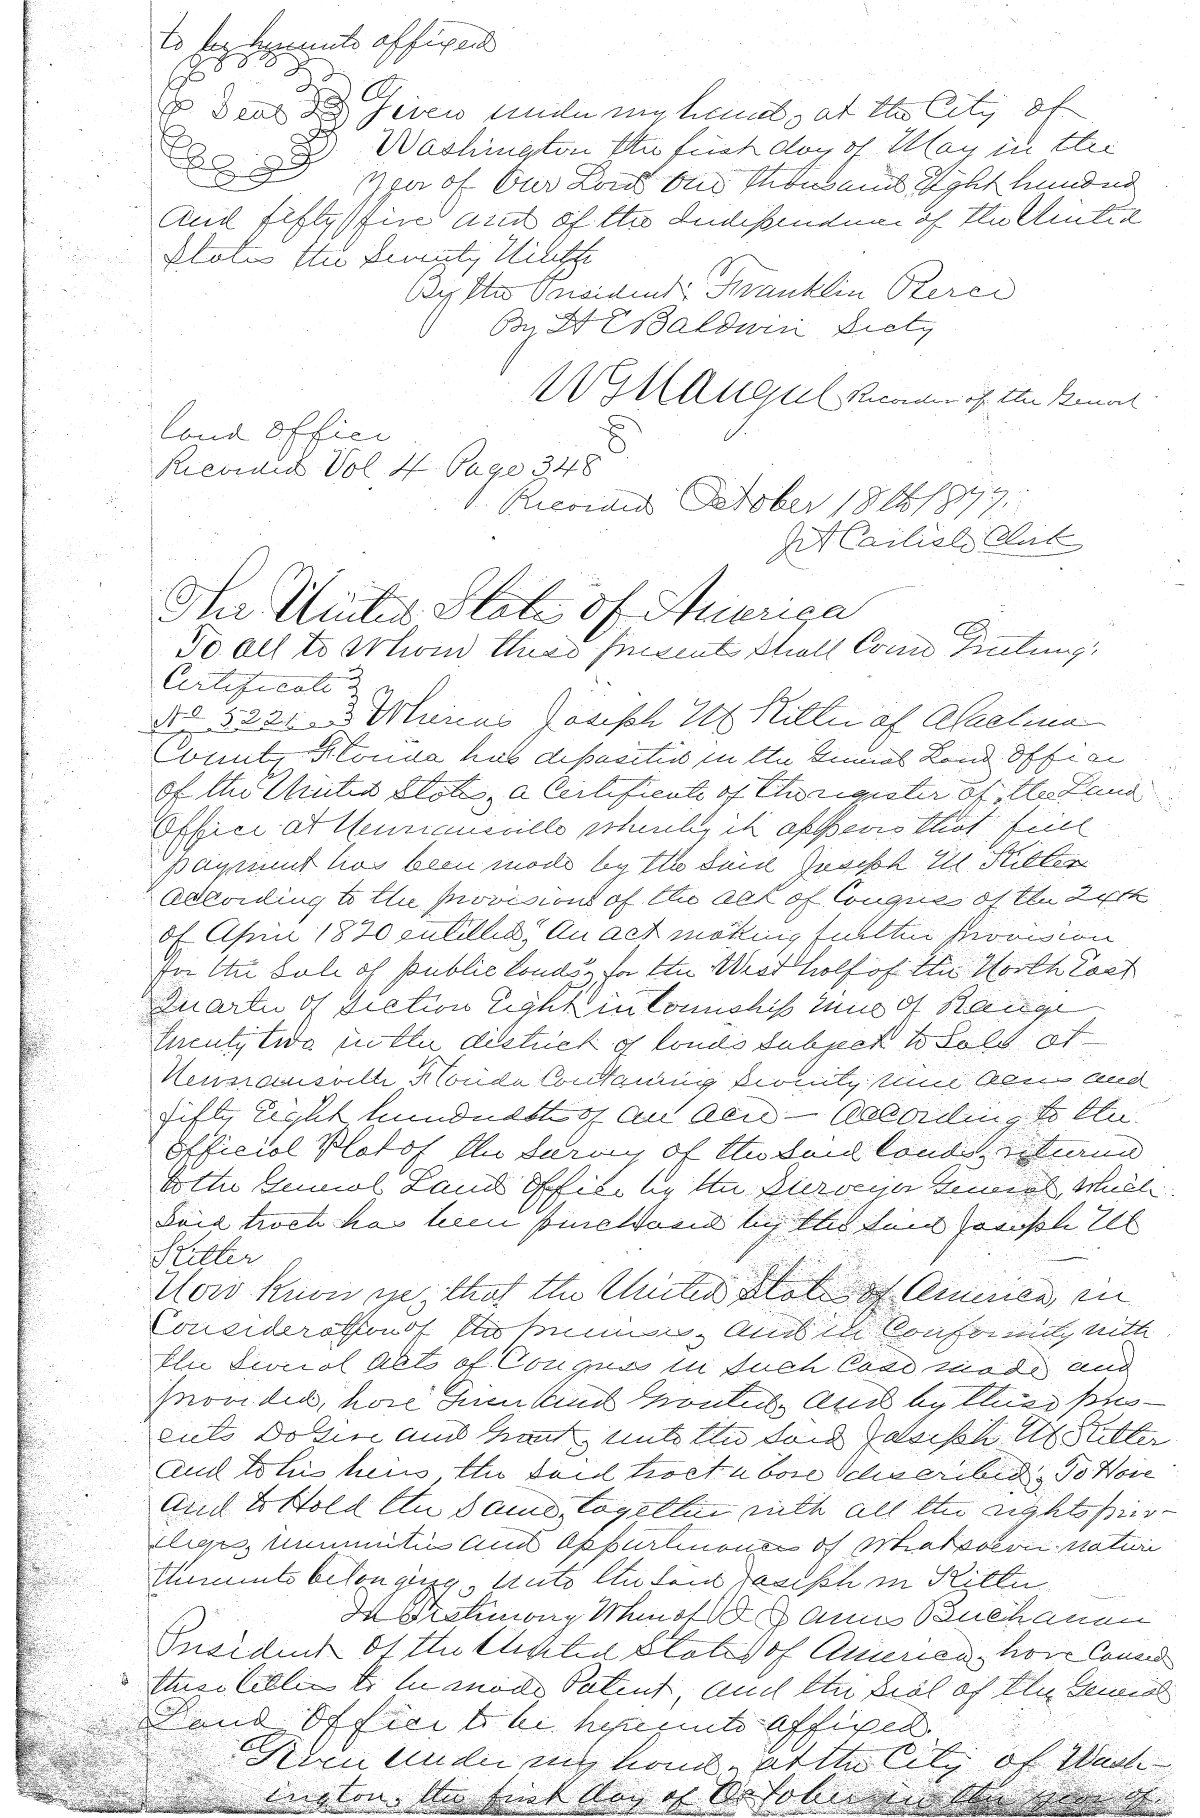 to be hereunto affixed
Seal Given under my hand, at the City of
Washington the first day of May in the
year of Our Lord One thousand Eight hundred
And fifty five and of the Independence of the United
States the Seventy Ninth
By the President: Franklin Pierce
By H E Baldwin Secty
Recorder of the Generl
Land Office
Recorded Vol. 4 Page 348
Recorded October 18th 1877.
Clerk
The United States of America
To all to Whom these presents shall Come Greeting:
Certificate
No 5221 Whereas Joseph M Ritter of Alachua
County Florida has deposited in the General Land Office
of the United States, a Certificate of the register of the Land
Office at Newnansville whereby it appears that full
payment has been made by the Said Joseph M Ritter
According to the provisions of the act of Congress of the 24th
of April 1820 entitled, "An act making further provision
for the Sale of public lands", for the West half of the North East
Quarter of Section Eight in Township nine of Range
twenty two in the district of lands subject to Sale at
Newnansville Florida Containing Seventy nine acres and
fifty Eight hundredths of an acre — According to the
Official Plat of the Survey of the Said lands, returned
to the General Land Office by the Surveyor General, which
Said tract has been purchased by the Said Joseph M
Ritter
Now know ye, that the United States of America, in
Consideration of the premises, and in Conformity with
the Several acts of Congress in such Case made and
provided, have Given and Granted, and by these pres-
ents Do Give and Grant, unto the Said Joseph M Ritter
and to his heirs, the Said tract above described; To Have
and to Hold the Same, together with all the rights priv-
ileges, immunities and appurtenances of whatsoever nature
thereunto belonging, unto the Said Joseph m Ritter
In Testimony Whereof I James Buchanan
President of the United States of America, have Caused
these letters to be made Patent, and the Seal of the General
Land Office to be hereunto affixed.
Given under my hand, at the City of Wash-
ington, the first day of October in the year of